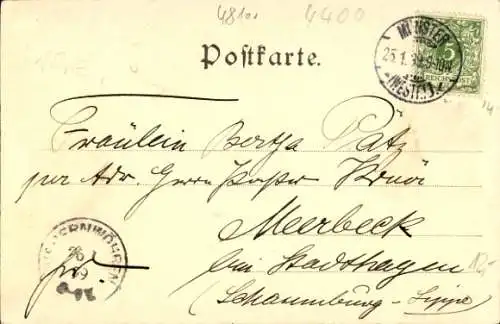 4810
4400
Postkarte.
MÜNSTER
25.1.
(WESTF.)
5
REICHSPOST
Fräulein Bertha Pätz
per Adr. Herrn Pastor
Meerbeck
bei Stadthagen
12,-
Schaumburg-Lippe
26
99